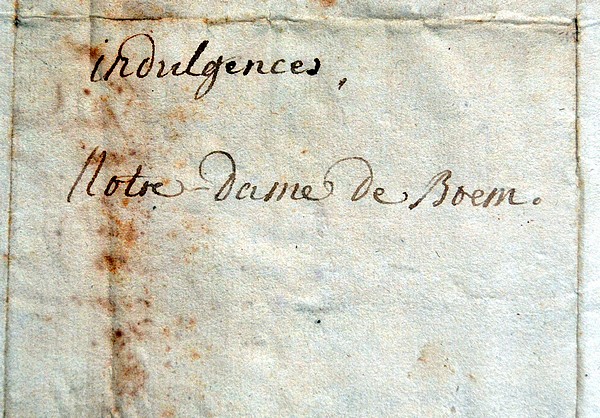 indulgences,
Notre-Dame de Boem.